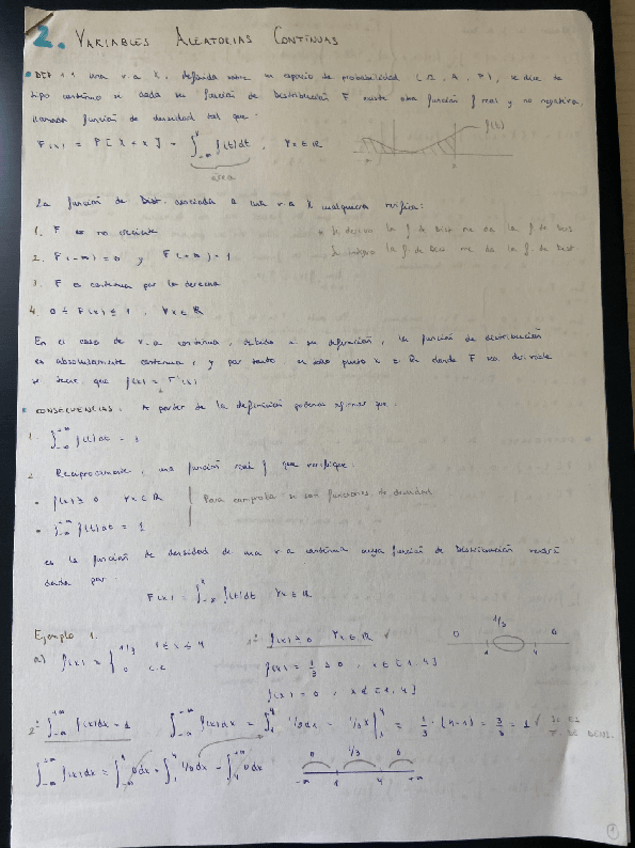 2. VARIABLES ALEATORIAS CONTINUAS
DEF 1.1 Una v.a X, definida sobre un espacio de probabilidad (Ω, A, P), se dice de
tipo continuo si dada su función de Distribución F existe otra función f real y no negativa,
llamada función de densidad tal que:
F(x) = P[X ≤ x] = ∫_{-∞}^{x} f(t)dt, ∀x ∈ R
f(t)
área
La función de Dist. asociada a una v.a X cualquiera verifica:
1. F es no creciente
* Si derivo la f. de Dist me da la f. de Dens
2. F(-∞) = 0 y F(+∞) = 1
Si integro la f. de Dens me da la f. de Dist.
3. F es continua por la derecha
4. 0 ≤ F(x) ≤ 1, ∀x ∈ R
En el caso de v.a continua, debido a su definición, la función de distribución
es absolutamente continua, y por tanto, en todo punto x ∈ R donde F sea derivable
se tiene que f(x) = F'(x)
CONSECUENCIAS. A partir de la definición podemos afirmar que:
1. ∫_{-∞}^{+∞} f(t)dt = 1
2. Recíprocamente, una función real f que verifique:
• f(x) ≥ 0 ∀x ∈ R
Para comprobar si son funciones de densidad
• ∫_{-∞}^{+∞} f(t)dt = 1
es la función de densidad de una v.a continua cuya función de Distribución vendrá
dada por:
F(x) = ∫_{-∞}^{x} f(t)dt ∀x ∈ R
Ejemplo 1.
a) f(x) = { 1/3 1 ≤ x ≤ 4
0 c.c
1º f(x) ≥ 0 ∀x ∈ R ✓
0 1/3 0
1 4
f(x) = 1/3 ≥ 0, x ∈ [1, 4]
f(x) = 0, x ∉ [1, 4]
2º ∫_{-∞}^{+∞} f(x)dx = 1 ∫_{-∞}^{+∞} f(x)dx = ∫_{1}^{4} 1/3 dx = 1/3 x |_{1}^{4} = 1/3 · (4-1) = 3/3 = 1 ✓ Sí es
f. de Dens.
∫_{-∞}^{+∞} f(x)dx = ∫_{-∞}^{1} 0dx + ∫_{1}^{4} 1/3dx + ∫_{4}^{+∞} 0dx
0 1/3 0
-∞ 1 4 +∞
1